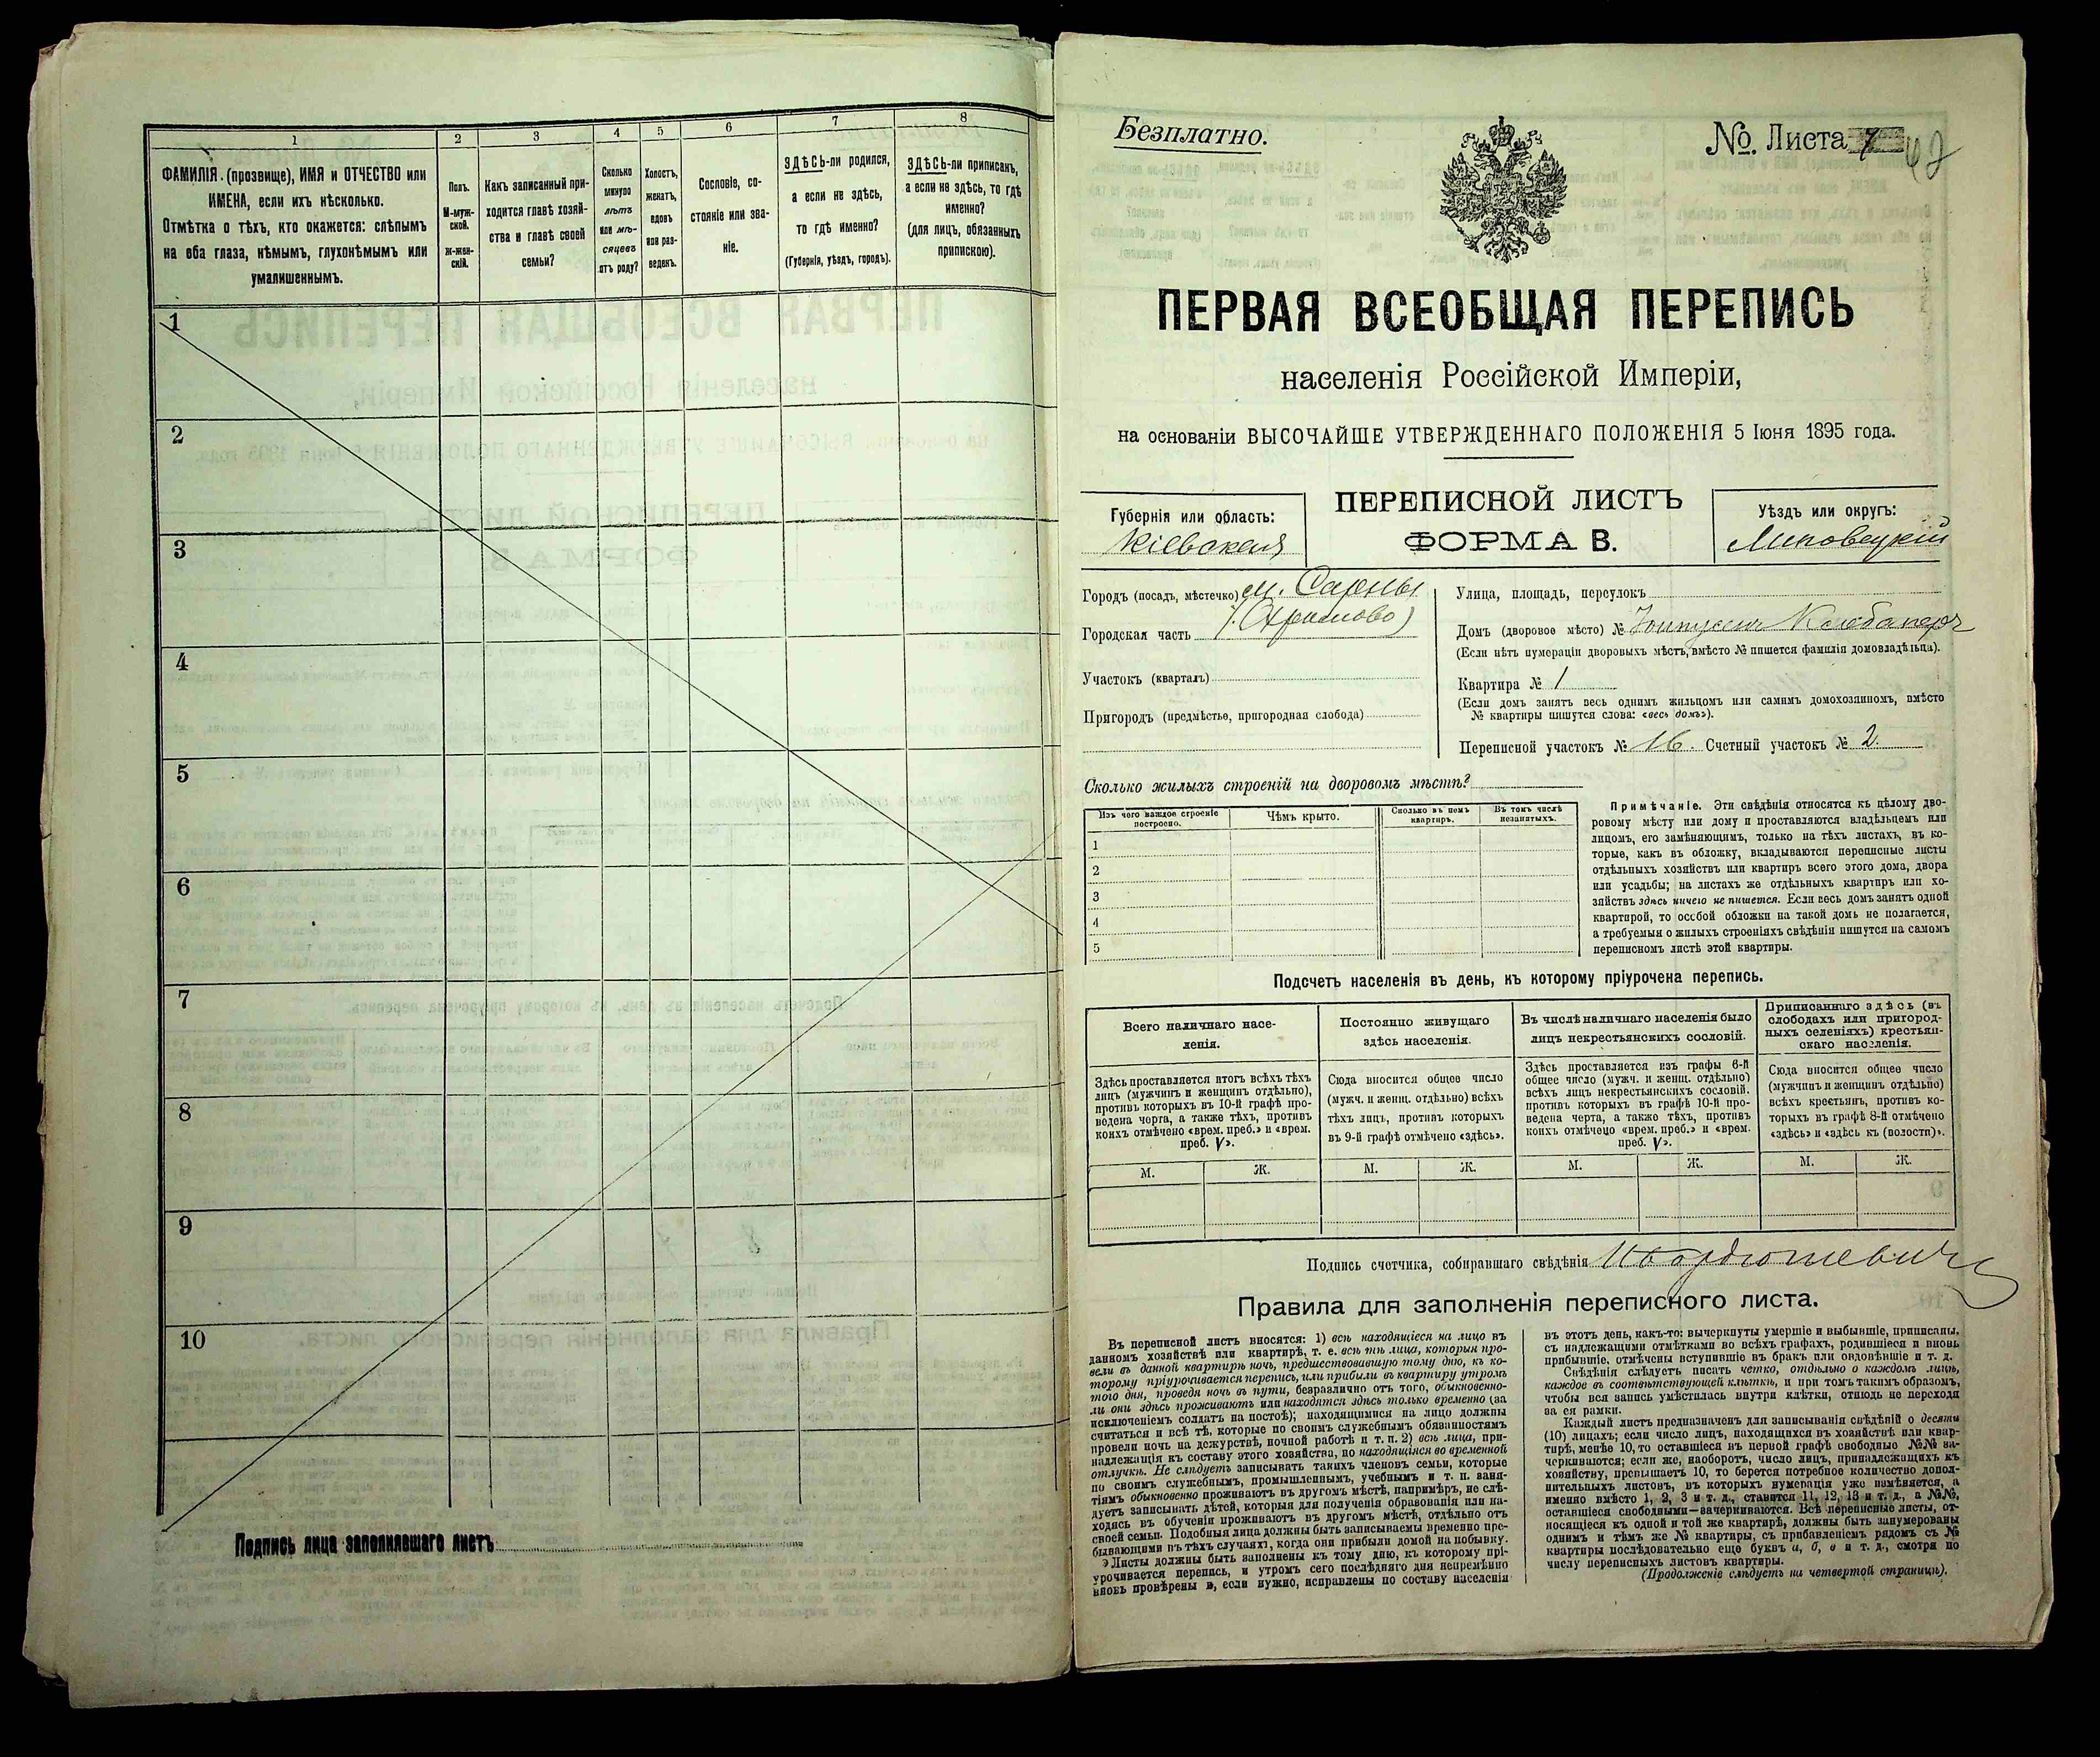 1
2
3
4
5
6
7
8
ФАМИЛІЯ (прозвище), ИМЯ и ОТЧЕСТВО или
ИМЕНА, если ихъ нѣсколько.
Отмѣтка о тѣхъ, кто окажется: слѣпымъ
на оба глаза, нѣмымъ, глухонѣмымъ или
умалишеннымъ.
Полъ.
М-муж-
ской.
Ж-жен-
скій.
Какъ записанный при-
ходится главѣ хозяй-
ства и главѣ своей
семьи?
Сколько
минуло
лѣтъ
или мѣ-
сяцевъ
отъ роду?
Холостъ,
женатъ,
вдовъ
или раз-
веденъ.
Сословіе, со-
стояніе или зва-
ніе.
ЗДѢСЬ-ли родился,
а если не здѣсь,
то гдѣ именно?
(Губернія, уѣздъ, городъ).
ЗДѢСЬ-ли приписанъ,
а если не здѣсь, то гдѣ
именно?
(для лицъ, обязанныхъ
припискою).
1
2
3
4
5
6
7
8
9
10
Подпись лица заполнявшаго листъ
Безплатно.
№ Листа 7
ПЕРВАЯ ВСЕОБЩАЯ ПЕРЕПИСЬ
населенія Россійской Имперіи,
на основаніи ВЫСОЧАЙШЕ УТВЕРЖДЕННАГО ПОЛОЖЕНІЯ 5 Іюня 1895 года.
Губернія или область:
Кіевская
ПЕРЕПИСНОЙ ЛИСТЪ
ФОРМА В.
Уѣздъ или округъ:
Липовецкій
Городъ (посадъ, мѣстечко) м. Сарны
Городская часть
Участокъ (кварталъ)
Пригородъ (предмѣстье, пригородная слобода)
Улица, площадь, переулокъ
Домъ (дворовое мѣсто) №
(Если нѣтъ нумераціи дворовыхъ мѣстъ, вмѣсто № пишется фамилія домовладѣльца).
Квартира № 1
(Если домъ занятъ весь однимъ жильцомъ или самимъ домохозяиномъ, вмѣсто
№ квартиры пишутся слова: «весь домъ»).
Переписной участокъ № 16. Счетный участокъ № 2.
Сколько жилыхъ строеній на дворовомъ мѣстѣ?
Изъ чего каждое строеніе
построено.
Чѣмъ крыто.
Сколько въ немъ
квартиръ.
Въ томъ числѣ
незанятыхъ.
1
2
3
4
5
Примѣчаніе. Эти свѣдѣнія относятся къ цѣлому дво-
ровому мѣсту или дому и проставляются владѣльцемъ или
лицомъ, его замѣняющимъ, только на тѣхъ листахъ, въ ко-
торые, какъ въ обложку, вкладываются переписные листы
отдѣльныхъ хозяйствъ или квартиръ всего этого дома, двора
или усадьбы; на листахъ же отдѣльныхъ квартиръ или хо-
зяйствъ здѣсь ничего не пишется. Если весь домъ занятъ одной
квартирой, то особой обложки на такой домъ не полагается,
а требуемыя о жилыхъ строеніяхъ свѣдѣнія пишутся на самомъ
переписномъ листѣ этой квартиры.
Подсчетъ населенія въ день, къ которому пріурочена перепись.
Всего наличнаго насе-
ленія.
Постоянно живущаго
здѣсь населенія.
Въ числѣ наличнаго населенія было
лицъ некрестьянскихъ сословій.
Приписаннаго здѣсь (въ
слободахъ или пригород-
ныхъ селеніяхъ) крестьян-
скаго населенія.
Здѣсь проставляется итогъ всѣхъ тѣхъ
лицъ (мужчинъ и женщинъ отдѣльно),
противъ которыхъ въ 10-й графѣ про-
ведена черта, а также тѣхъ, противъ
коихъ отмѣчено «врем. преб.» и «врем.
преб. V».
Сюда вносится общее число
(мужч. и женщ. отдѣльно) всѣхъ
тѣхъ лицъ, противъ которыхъ
въ 9-й графѣ отмѣчено «здѣсь».
Здѣсь проставляется изъ графы 6-й
общее число (мужч. и женщ. отдѣльно)
всѣхъ лицъ некрестьянскихъ сословій.
противъ которыхъ въ графѣ 10-й про-
ведена черта, а также тѣхъ, противъ
коихъ отмѣчено «врем. преб.» и «врем.
преб. V».
Сюда вносится общее число
(мужчинъ и женщинъ отдѣльно)
всѣхъ крестьянъ, противъ ко-
торыхъ въ графѣ 8-й отмѣчено
«здѣсь» и «здѣсь къ (волости)».
М. Ж. М. Ж. М. Ж. М. Ж.
Подпись счетчика, собиравшаго свѣдѣнія
Правила для заполненія переписного листа.
Въ переписной листъ вносятся: 1) всѣ находящіеся на лицо въ
данномъ хозяйствѣ или квартирѣ, т. е. всѣ тѣ лица, которыя про-
вели въ данной квартирѣ ночь, предшествовавшую тому дню, къ ко-
торому пріурочивается перепись, или прибыли въ квартиру утромъ
того дня, проведя ночь въ пути, безразлично отъ того, обыкновенно-
ли они здѣсь проживаютъ или находятся здѣсь только временно (за
исключеніемъ солдатъ на постоѣ); находящимися на лицо должны
считаться и всѣ тѣ, которые по своимъ служебнымъ обязанностямъ
провели ночь на дежурствѣ, ночной работѣ и т. п. 2) всѣ лица, при-
надлежащія къ составу этого хозяйства, но находящіяся во временной
отлучкѣ. Не слѣдуетъ записывать такихъ членовъ семьи, которые
по своимъ служебнымъ, промышленнымъ, учебнымъ и т. п. заня-
тіямъ обыкновенно проживаютъ въ другомъ мѣстѣ, напримѣръ, не слѣ-
дуетъ записывать дѣтей, которыя для полученія образованія или на-
ходясь въ обученіи проживаютъ въ другомъ мѣстѣ, отдѣльно отъ
своей семьи. Подобныя лица должны быть записываемы временно пре-
бывающими въ тѣхъ случаяхъ, когда они прибыли домой на побывку.
Листы должны быть заполнены къ тому дню, къ которому прі-
урочивается перепись, и утромъ сего послѣдняго дня непремѣнно
вновь провѣрены и, если нужно, исправлены по составу населенія
въ этотъ день, какъ-то: вычеркнуты умершіе и выбывшіе, приписаны,
съ надлежащими отмѣтками во всѣхъ графахъ, родившіеся и вновь
прибывшіе, отмѣчены вступившіе въ бракъ или овдовѣвшіе и т. д.
Свѣдѣнія слѣдуетъ писать четко, отдѣльно о каждомъ лицѣ,
каждое въ соотвѣтствующей клѣткѣ, и при томъ такимъ образомъ,
чтобы вся запись умѣстилась внутри клѣтки, отнюдь не переходя
за ея рамки.
Каждый листъ предназначенъ для записыванія свѣдѣній о десяти
(10) лицахъ; если число лицъ, находящихся въ хозяйствѣ или квар-
тирѣ, менѣе 10, то оставшіеся въ первой графѣ свободные №№ за-
черкиваются; если же, наоборотъ, число лицъ, принадлежащихъ къ
хозяйству, превышаетъ 10, то берется потребное количество допол-
нительныхъ листовъ, въ которыхъ нумерація уже измѣняется, а
именно вмѣсто 1, 2, 3 и т. д., ставится 11, 12, 13 и т. д., а №№,
оставшіеся свободными—зачеркиваются. Всѣ переписные листы, от-
носящіеся къ одной и той же квартирѣ, должны быть занумерованы
однимъ и тѣмъ же № квартиры, съ прибавленіемъ рядомъ съ №
квартиры послѣдовательно еще буквъ а, б, в и т. д., смотря по
числу переписныхъ листовъ квартиры.
(Продолженіе слѣдуетъ на четвертой страницѣ).